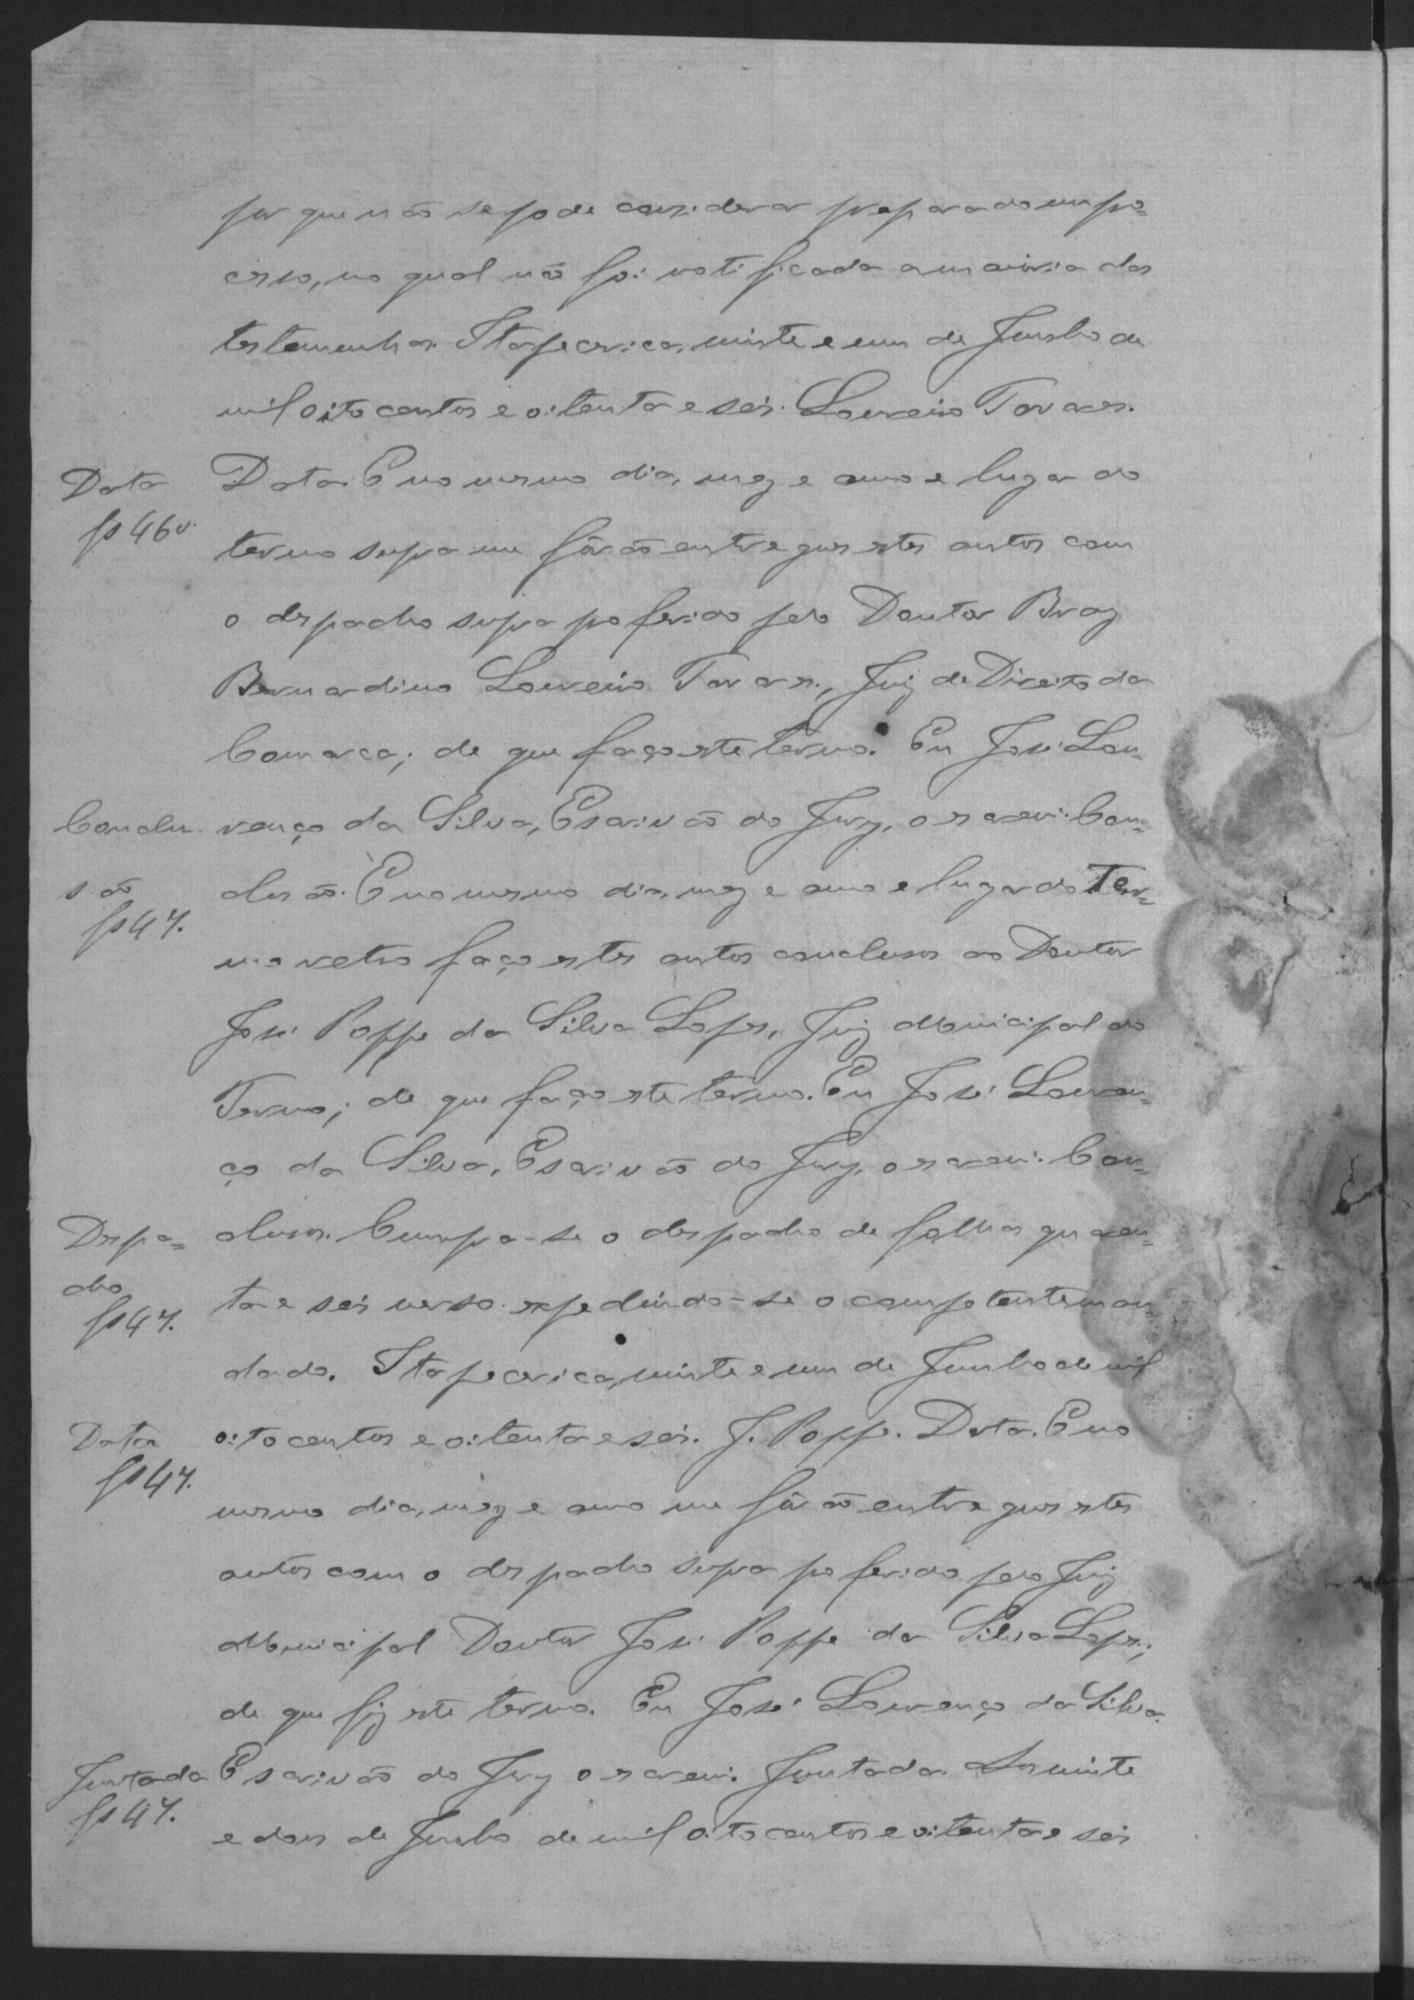 por que não se pode considerar preparado um pro=
cesso, no qual não foi notificada a maioria das
testemunhas. Itapecerica, vinte e um de Junho de
mil oito centos e oitenta e seis. Loureiro Tavares.
Data
fs 46 v.
Data. E no mesmo dia, mez e anno e lugar do
termo supra me forão entregues estes autos com
o despacho supra proferido pelo Doutor Braz
Bernardino Loureiro Tavares, Juiz de Direito da
Comarca; de que faço este termo. Eu José Lou-
Conclu-
são
fs 47.
renço da Silva, Escrivão do Jury, o escrevi. Con=
clusão. E no mesmo dia, mez e anno e lugar do Ter=
mo retro faço estes autos conclusos ao Doutor
José Poppe da Silva Lopes, Juiz Municipal do
Termo; de que faço este termo. Eu José Louren=
ço da Silva, Escrivão do Jury, o escrevi. Con=
Despa=
cho
fs 47.
clusos. Cumpra-se o despacho de folhas quaren=
ta e seis verso expedindo-se o competente man=
dado. Itapecerica, vinte e um de Junho de mil
Data
fs 47.
oito centos e oitenta e seis. J. Poppe. Data. E no
mesmo dia, mez e anno me forão entregues estes
autos com o despacho supra proferido pelo Juiz
Municipal Doutor José Poppe da Silva Lopes;
de que fiz este termo. Eu José Lourenço da Silva,
Juntada
fs 47.
Escrivão do Jury o escrevi. Juntada. Aos vinte
e dous de Junho de mil oito centos e oitenta e seis